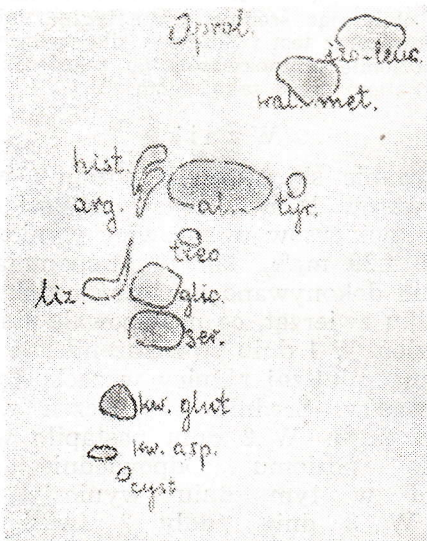 prol.
izo-leuc.
wal. met.
hist.
arg. al. tyr.
treo
liz. glic.
ser.
kw. glut
kw. asp.
cyst